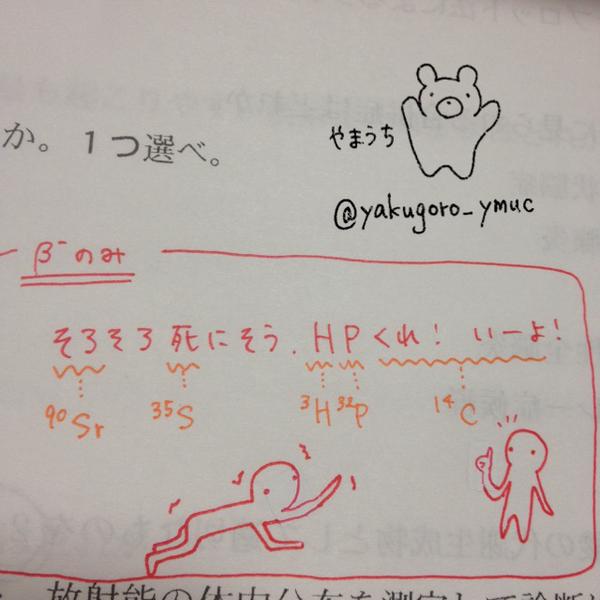 か。1つ選べ。
やまうち
@yakugoro_ymuc
β⁻のみ
そろそろ死にそう.HPくれ! いーよ!
⁹⁰Sr ³⁵S ³H ³²P ¹⁴C
放射能の体内分布を測定して診断